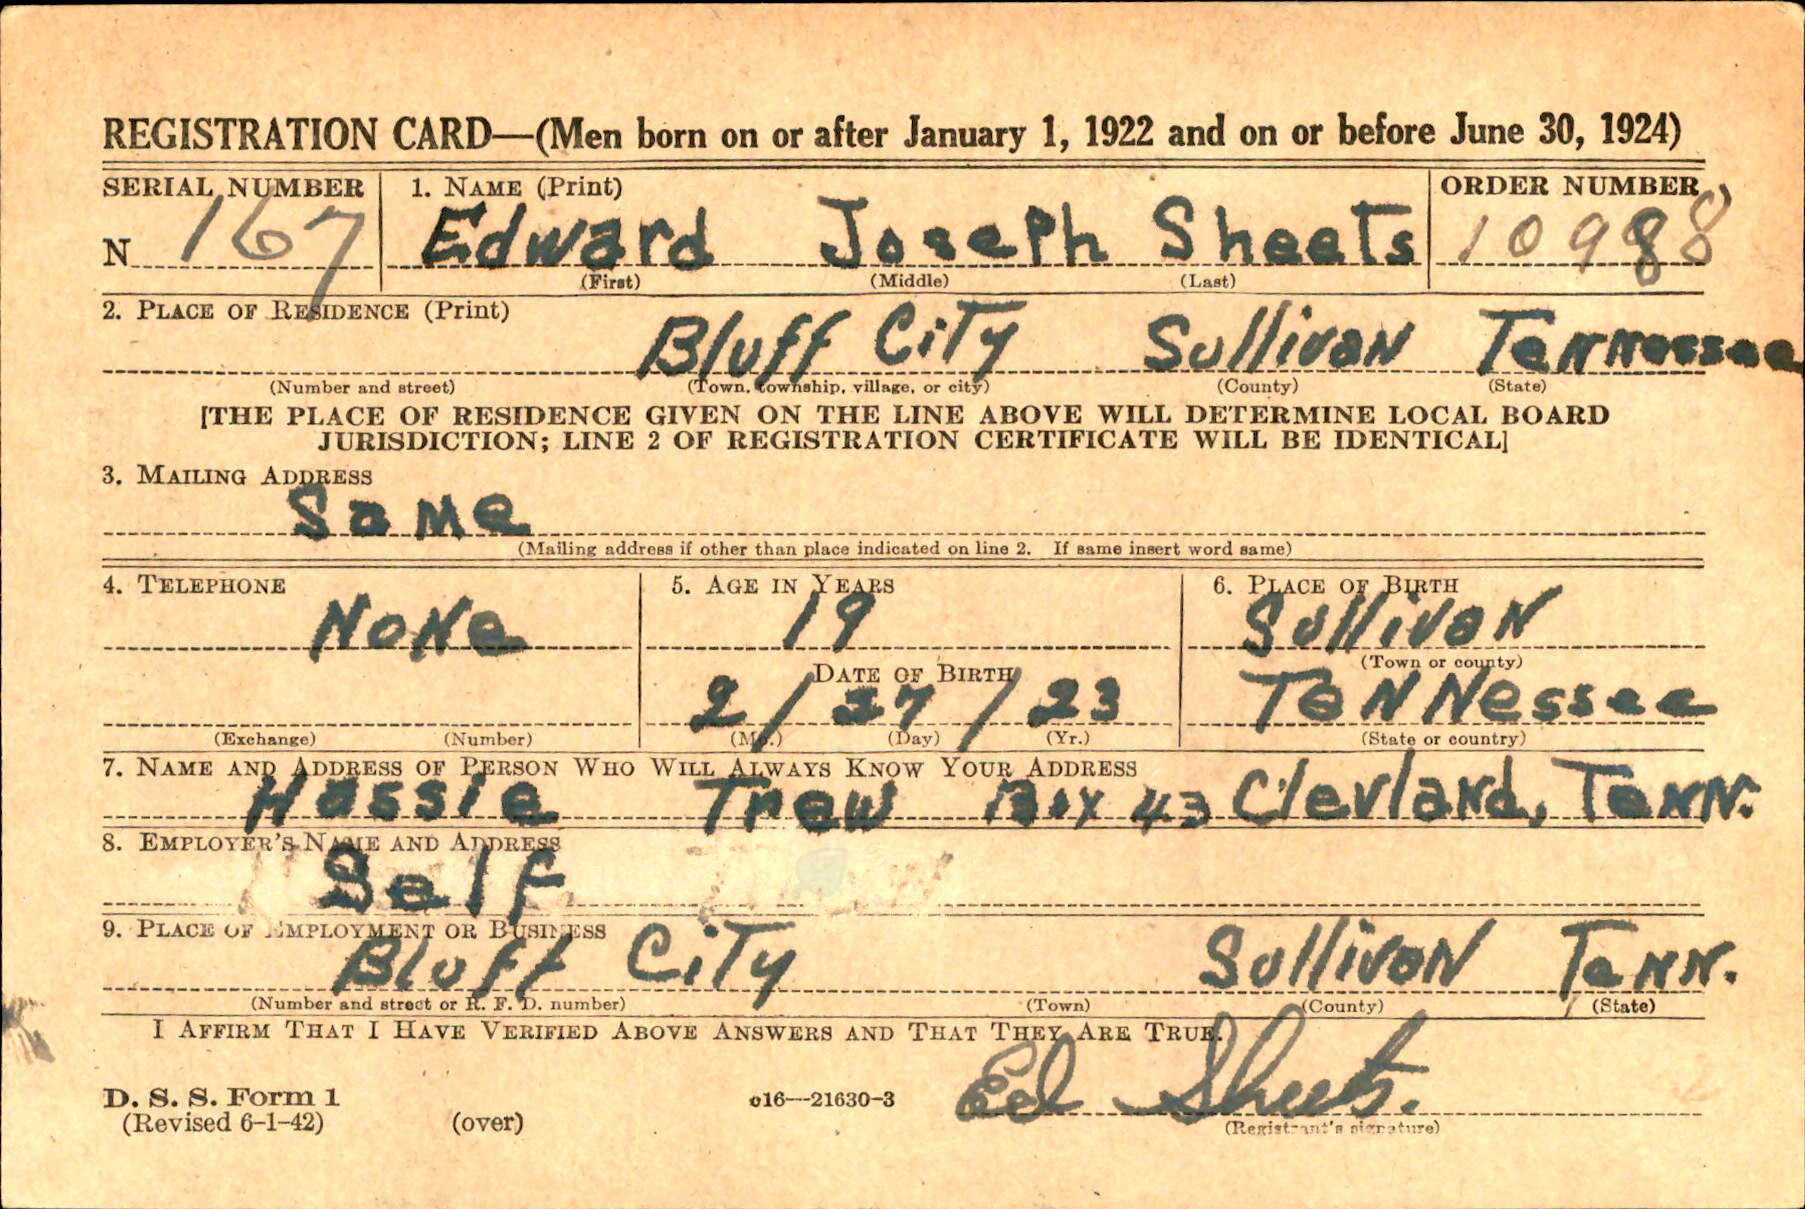 REGISTRATION CARD—(Men born on or after January 1, 1922 and on or before June 30, 1924)
SERIAL NUMBER 1. NAME (Print) ORDER NUMBER
N 167 Edward Joseph Sheets 10988
(First) (Middle) (Last)
2. PLACE OF RESIDENCE (Print)
Bluff City Sullivan Tennessee
(Number and street) (Town, township, village, or city) (County) (State)
[THE PLACE OF RESIDENCE GIVEN ON THE LINE ABOVE WILL DETERMINE LOCAL BOARD
JURISDICTION; LINE 2 OF REGISTRATION CERTIFICATE WILL BE IDENTICAL]
3. MAILING ADDRESS
Same
(Mailing address if other than place indicated on line 2. If same insert word same)
4. TELEPHONE 5. AGE IN YEARS 6. PLACE OF BIRTH
None 19 Sullivan
(Town or county)
DATE OF BIRTH
2 / 27 / 23 Tennessee
(Exchange) (Number) (Mo.) (Day) (Yr.) (State or country)
7. NAME AND ADDRESS OF PERSON WHO WILL ALWAYS KNOW YOUR ADDRESS
Hassie Trew Box 43 Clevland, Tenn.
8. EMPLOYER'S NAME AND ADDRESS
Self
9. PLACE OF EMPLOYMENT OR BUSINESS
Bluff City Sullivan Tenn.
(Number and street or R. F. D. number) (Town) (County) (State)
I AFFIRM THAT I HAVE VERIFIED ABOVE ANSWERS AND THAT THEY ARE TRUE.
Ed Sheets.
D. S. S. Form 1 c16—21630-3
(Revised 6-1-42) (over) (Registrant's signature)